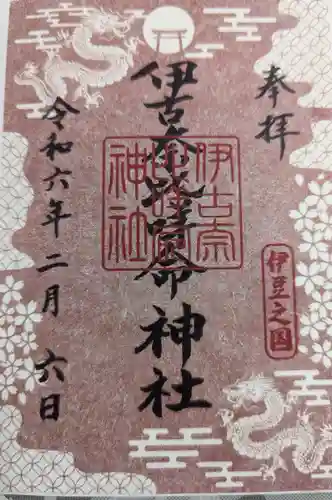 奉拝
伊古奈比咩命神社
伊古奈
比咩命
神社
伊豆之国
令和六年二月六日